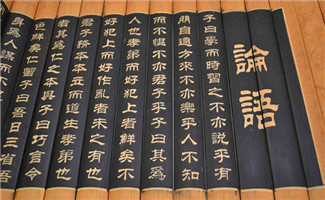 論語
子曰學而時習之不亦說乎有
朋自遠方來不亦樂乎人不知
而不慍不亦君子乎有子曰其為
人也孝弟而好犯上者鮮矣不
好犯上而好作亂者未之有也
君子務本本立而道生孝弟也
者其為仁之本與子曰巧言令
色鮮矣仁曾子曰吾日三省吾
身為人謀而不